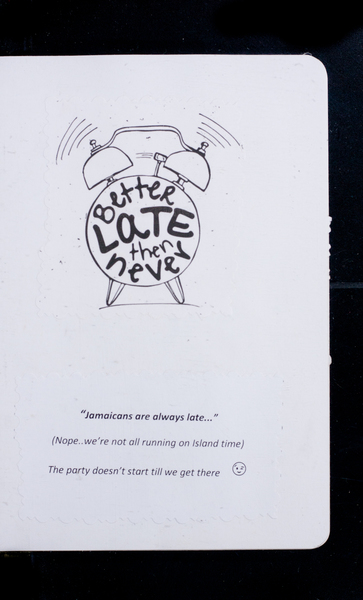 Better
LaTE
then
never
"Jamaicans are always late..."
(Nope..we're not all running on Island time)
The party doesn't start till we get there